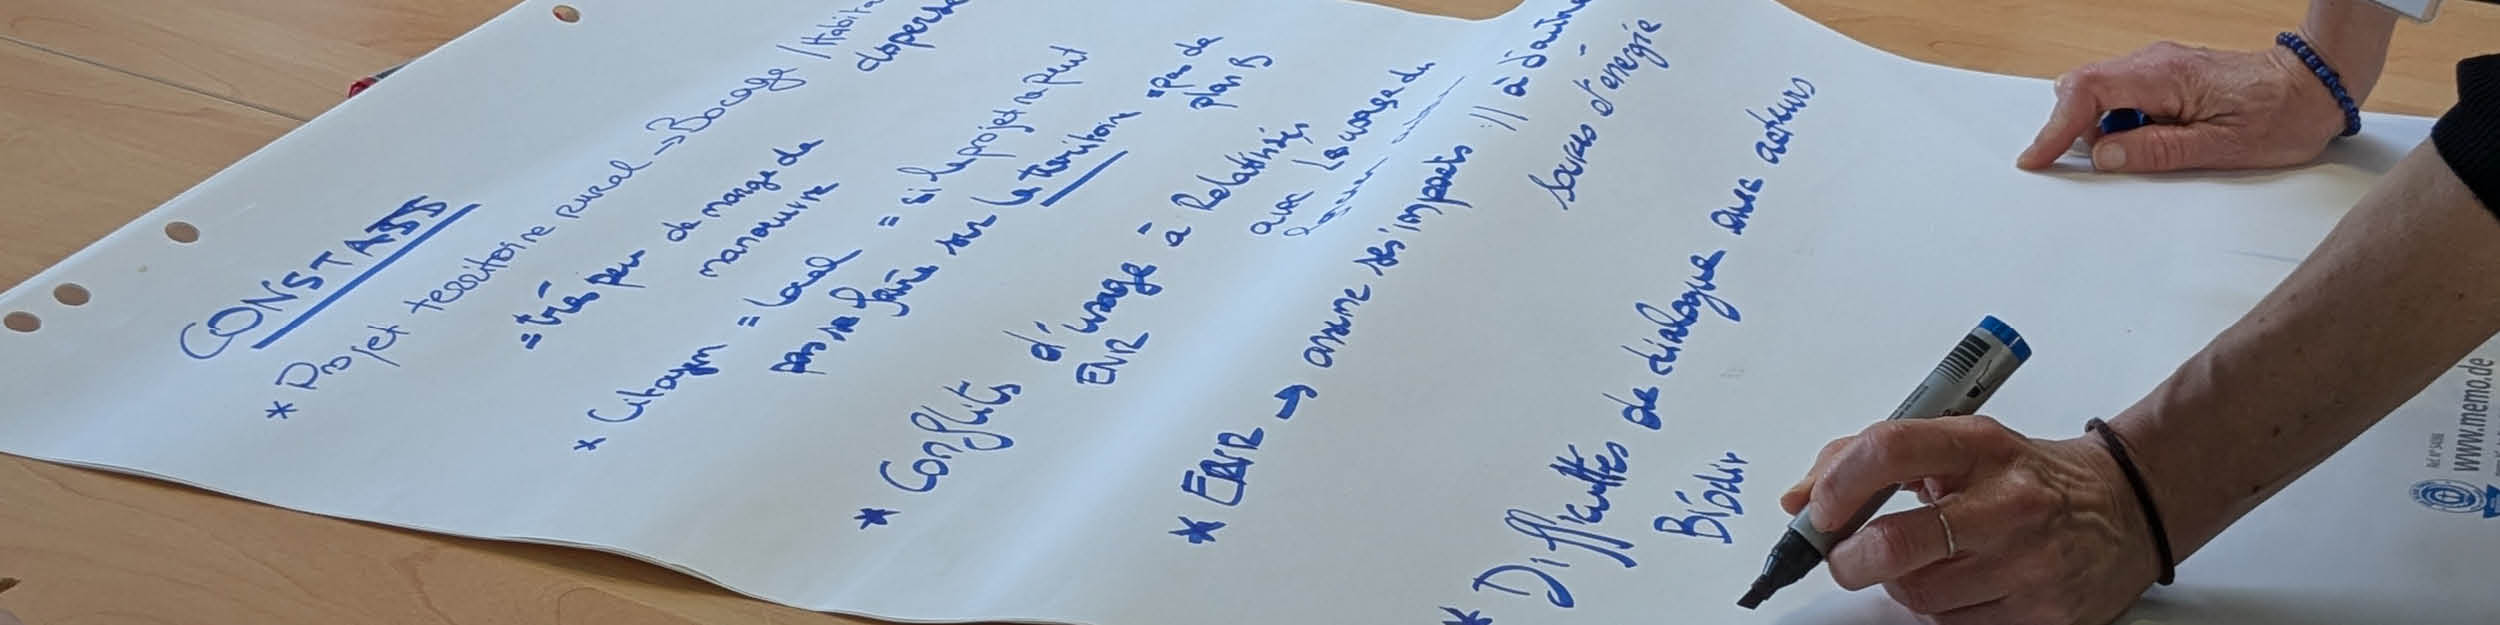 CONSTATS
* Projet territoire rural → Bocage / Habitat
dispersé
= très peu de marge de
manoeuvre
* Citoyen = local = si le projet ne peut
pas se faire sur le territoire = pas de
plan B
* Conflits d'usage à Relativiser
ENR
avec l'usage du
* ENR → assume ses impacts // à d'autres
sources d'énergie
* Difficultés de dialogue avec acteurs
Biodiv
www.memo.de